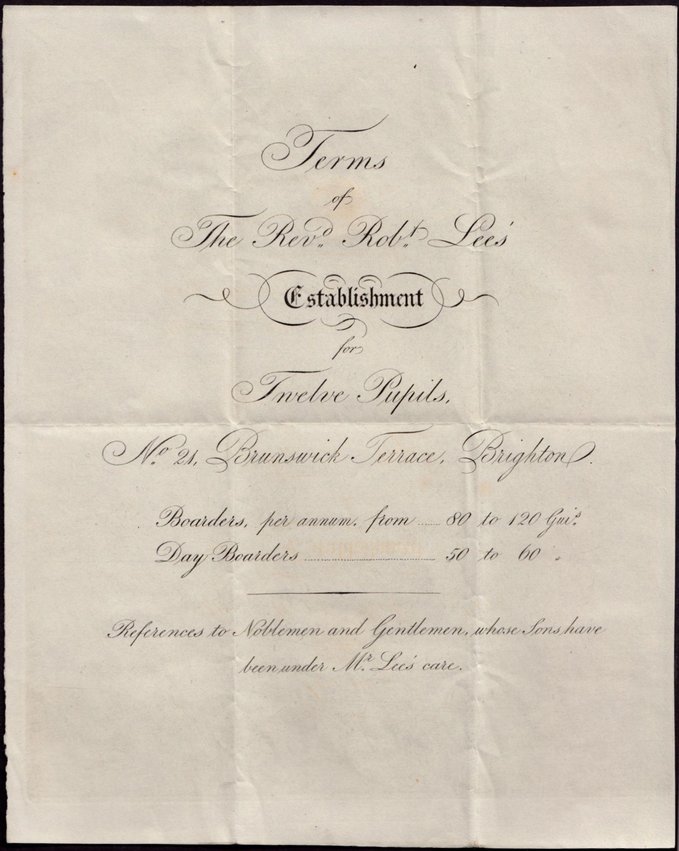 Terms
of
The Revd. Robt. Lee's
Establishment
for
Twelve Pupils,
No. 21, Brunswick Terrace, Brighton.
Boarders, per annum, from ...... 80 to 120 Gui.s
Day Boarders ........................................ 50 to 60 "
References to Noblemen and Gentlemen, whose Sons have
been under Mr. Lee's care.